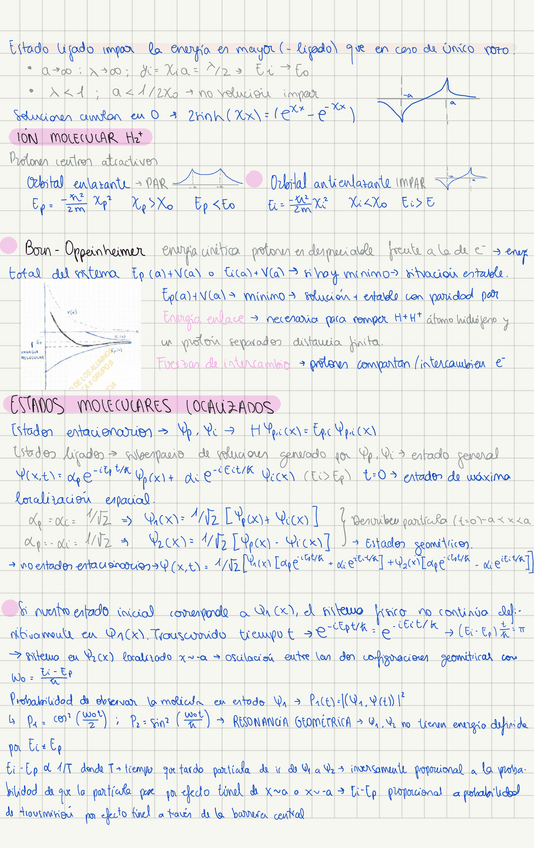 Estado ligado impar la energía es mayor (- ligado) que en caso de único pozo.
• a→∞ : λ→∞ ; yi = χia = λ/2 → Ei → E0
• λ<1 ; a<1/2χ0 → no solución impar
Soluciones cambian en 0 → 2sinh(χx) = (e^χx - e^-χx)
-a a
IÓN MOLECULAR H2+
Protones centros atractivos
Orbital enlazante → PAR
Orbital antienlazante IMPAR
Ep = -ħ²/2m χp² χp>χ0 Ep<E0
Ei = -ħ²/2m χi² χi<χ0 Ei>E
Born-Oppenheimer energía cinética protones es despreciable frente a la de e⁻ → energ
total del sistema Ep(a)+V(a) o Ei(a)+V(a) → si hay mínimo → situación estable.
Ep(a)+V(a) → mínimo → solución + estable con paridad par
Energía enlace → necesaria para romper H+H⁺ átomo hidrógeno y
un protón separados distancia finita.
Fuerzas de intercambio → protones comparten/intercambien e⁻
V(a)
ENERGÍA MOLECULAR
ESTADOS MOLECULARES LOCALIZADOS
Estados estacionarios → Ψp, Ψi → HΨp,i(x) = Ep,i Ψp,i(x)
Estados ligados → subespacio de soluciones generado por Ψp, Ψi → estado general
Ψ(x,t) = αp e^-iEpt/ħ Ψp(x) + αi e^-iEit/ħ Ψi(x) (Ei>Ep) t=0 → estados de máxima
localización espacial.
αp = αi = 1/√2 ⇒ Ψ1(x) = 1/√2 [Ψp(x) + Ψi(x)]
αp = -αi = 1/√2 ⇒ Ψ2(x) = 1/√2 [Ψp(x) - Ψi(x)]
Describen partícula (t=0) -a<x<a
→ Estados geométricos.
→ no estados estacionarios → Ψ(x,t) = 1/√2 [Ψ1(x)[αp e^-iEpt/ħ + αi e^-iEit/ħ] + Ψ2(x)[αp e^-iEpt/ħ - αi e^-iEit/ħ]]
Si nuestro estado inicial corresponde a Ψ1(x), el sistema físico no continúa defi-
nitivamente en Ψ1(x). Transcurrido tiempo t → e^-iEpt/ħ = e^-iEit/ħ → (Ei-Ep) t/ħ = π
→ sistema en Ψ2(x) localizado x~-a → oscilación entre las dos configuraciones geométricas con
ω0 = Ei-Ep/ħ
Probabilidad de observar la molécula en estado Ψ1 → P1(t) = |(Ψ1, Ψ(t))|²
↳ P1 = cos²(ω0t/2) ; P2 = sin²(ω0t/2) → RESONANCIA GEOMÉTRICA → Ψ1, Ψ2 no tienen energía definida
por Ei ≠ Ep
Ei-Ep α 1/T donde T → tiempo que tarda partícula de ir de Ψ1 a Ψ2 → inversamente proporcional a la proba-
bilidad de que la partícula pase por efecto túnel de x~a o x~-a → Ei-Ep proporcional a probabilidad
de transmisión por efecto túnel a través de la barrera central